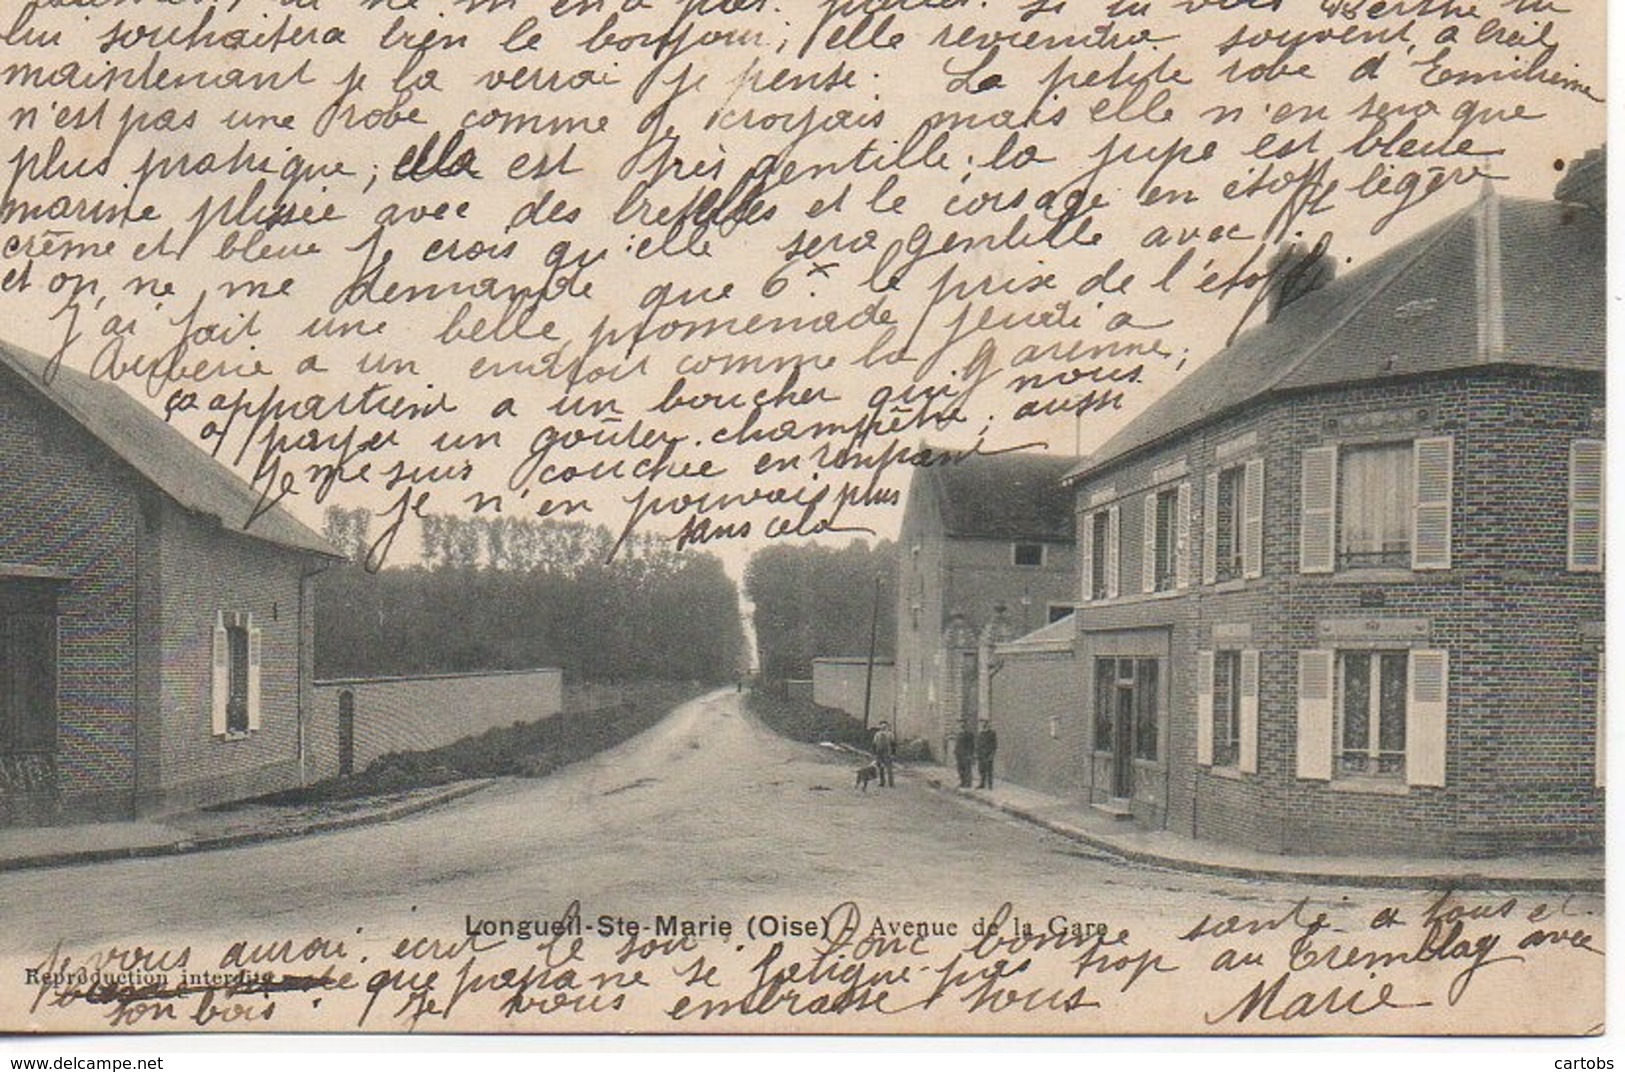 tu ne m'en a pas parlé. si tu vois Berthe tu
lui souhaitera bien le bonjour; elle reviendra souvent a Creil
maintenant je la verrai je pense. La petite robe d'Emilienne
n'est pas une robe comme je croyais mais elle n'en sera que
plus pratique; elle est très gentille; la jupe est bleue
marine plissée avec des bretelles et le corsage en étoffe légère
crême et bleue je crois qu'elle sera gentille avec
et on ne me demande que 6 le prix de l'étoffe
J'ai fait une belle promenade jeudi a
Verberie a un endroit comme la garenne;
ça appartient a un boucher qui nous
a payer un goûter champêtre; aussi
je me suis couchée en rentrant
je n'en pouvais plus
sans cela
Longueil-Ste-Marie (Oise) - Avenue de la Gare
Reproduction interdite
je vous aurai écrit le soir. Donc bonne santé a tous et
que papa ne se fatigue pas trop au Tremblay avec
son bois. Je vous embrasse tous Marie
cartobs
https://www.delcampe.net